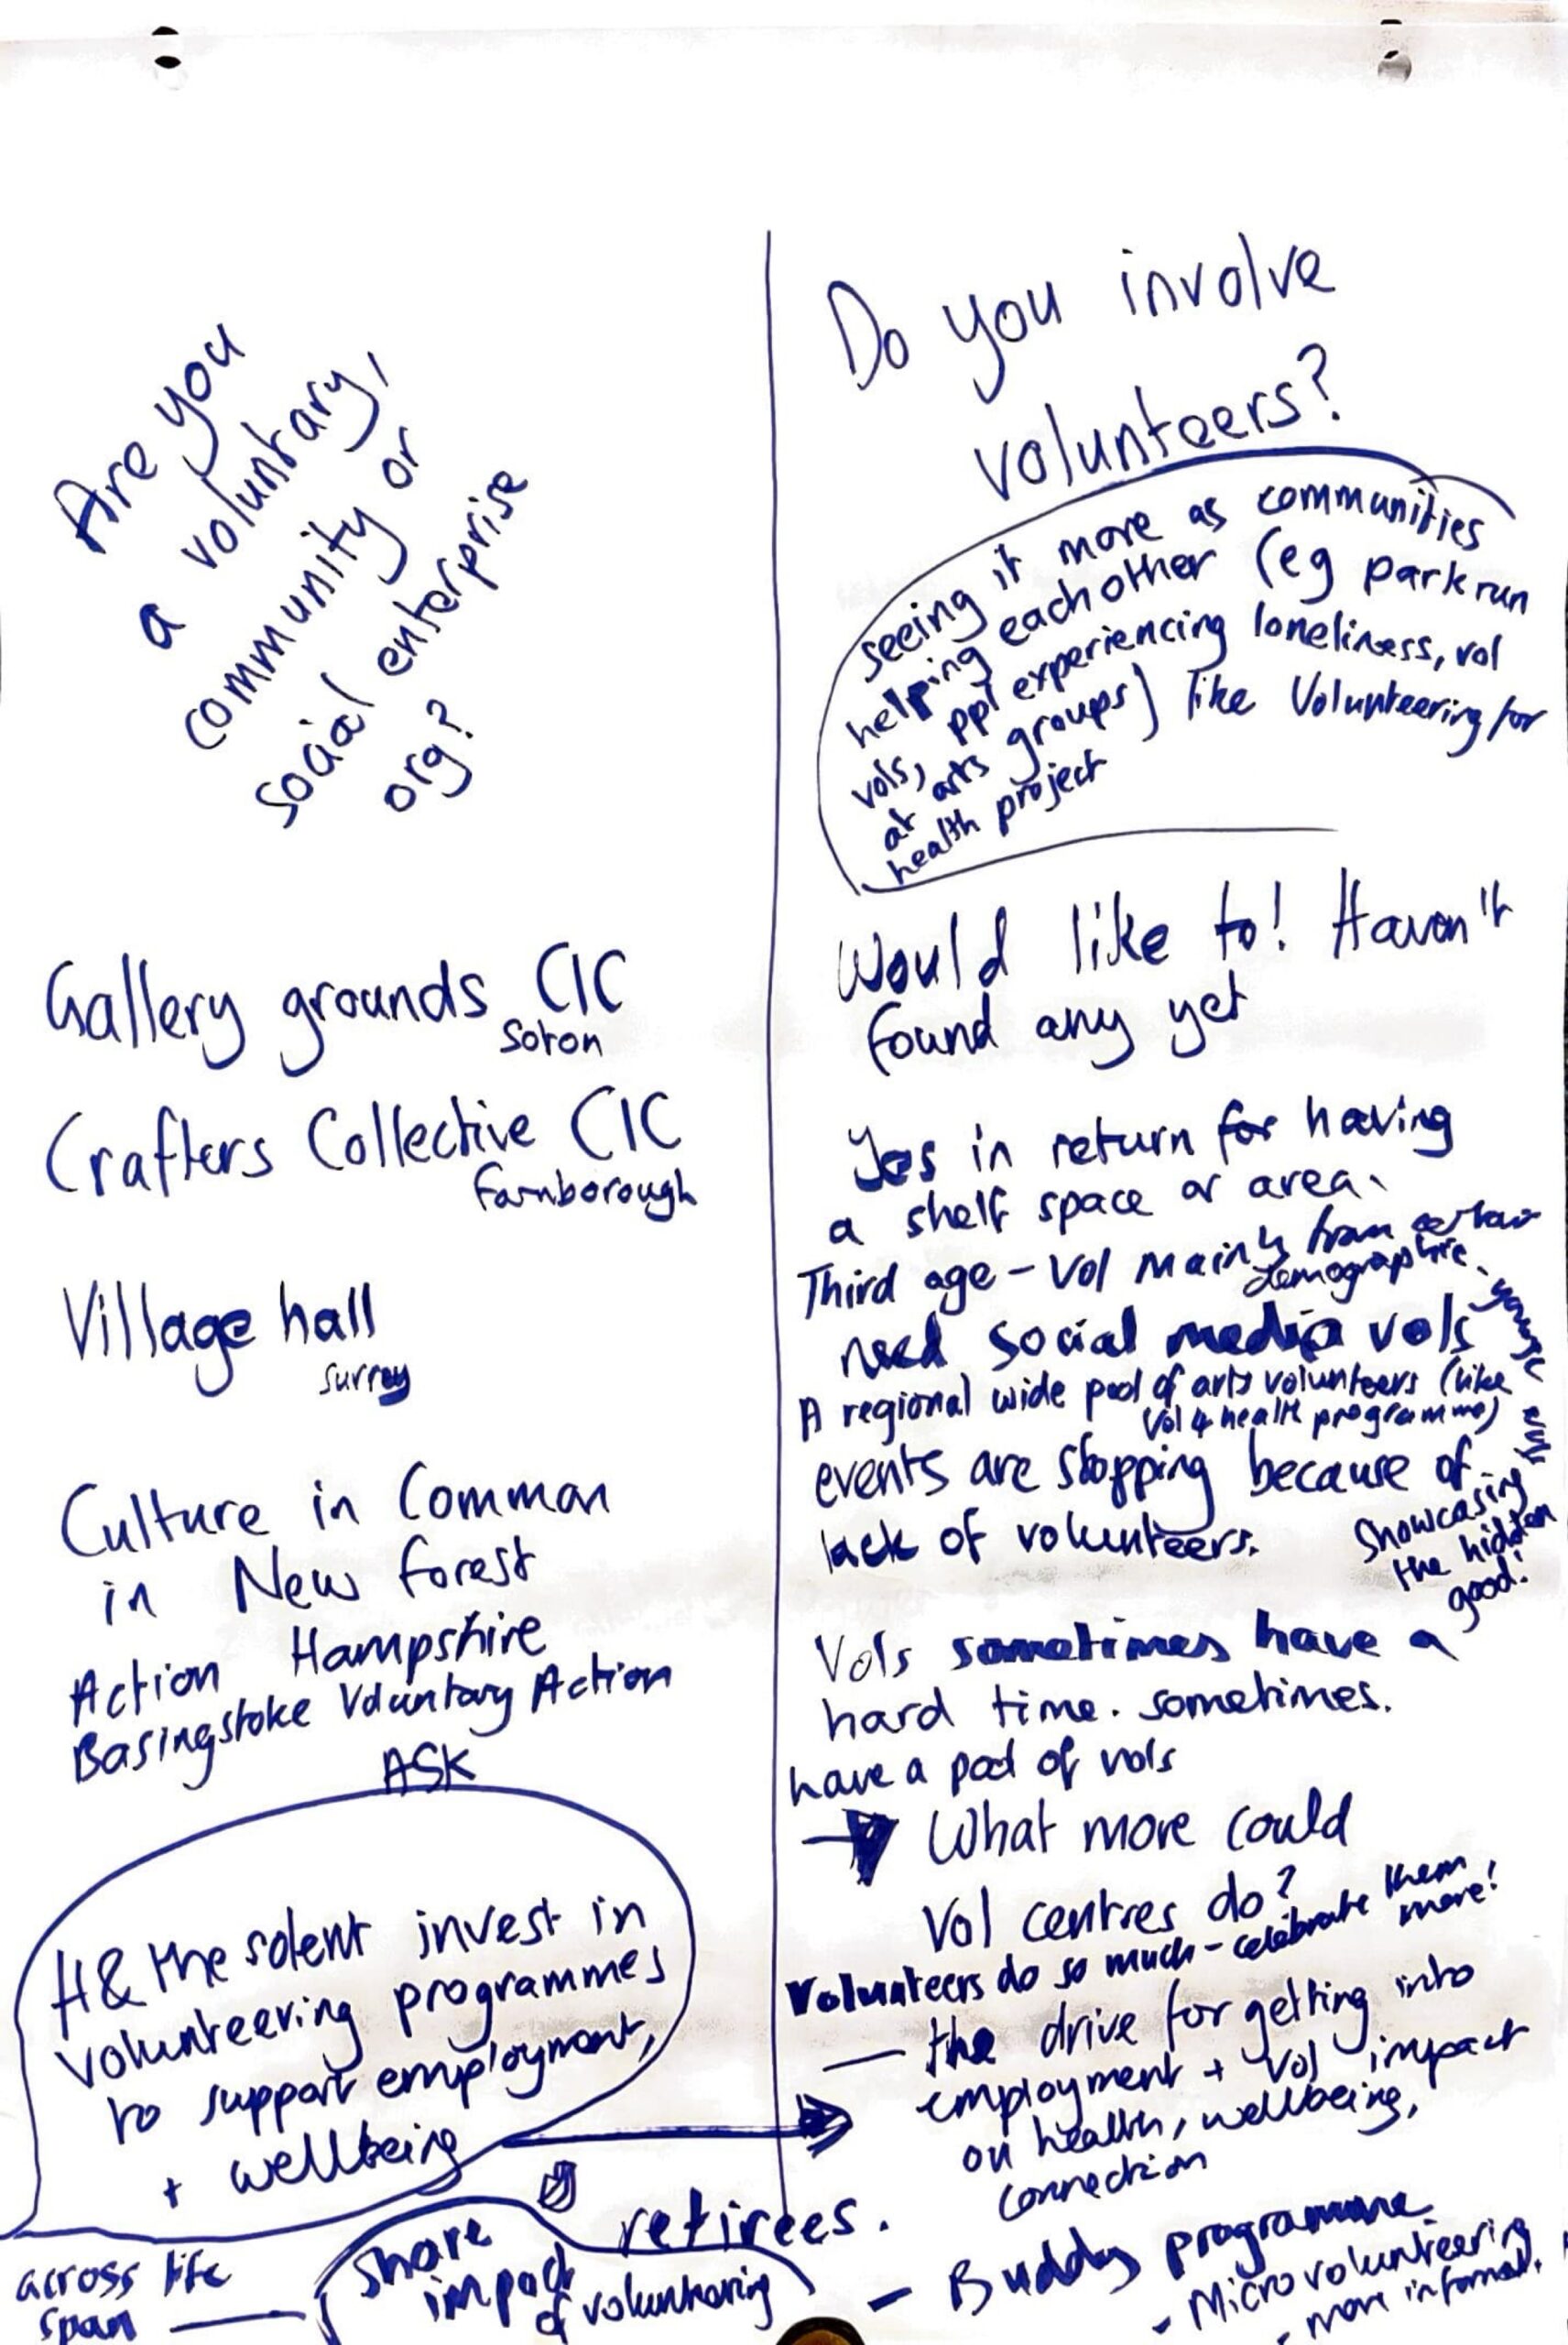 Are you
a voluntary,
community or
social enterprise
org?
Gallery grounds CIC
Soton
Crafters Collective CIC
Farnborough
Village hall
Surrey
Culture in Common
in New Forest
Action Hampshire
Basingstoke Voluntary Action
ASK
H& the solent invest in
volunteering programmes
to support employment,
+ wellbeing
across life
span
share
impact
of volunteering
retirees.
Do you involve
volunteers?
seeing it more as communities
helping eachother (eg parkrun
vols, ppl experiencing loneliness, vol
at arts groups) like Volunteering for
health project
Would like to! Haven't
found any yet
Yes in return for having
a shelf space or area.
Third age - Vol mainly from certain
demographic.
need social media vols
A regional wide pool of arts volunteers (like
Vol 4 health programme)
events are stopping because of
lack of volunteers.
Showcasing
the hidden
good!
Vols sometimes have a
hard time. sometimes.
have a pool of vols
→ What more could
Vol centres do?
Volunteers do so much - celebrate them
more!
— the drive for getting into
employment + vol impact
on health, wellbeing,
connection
- Buddy programme
- Microvolunteering
- more informal.